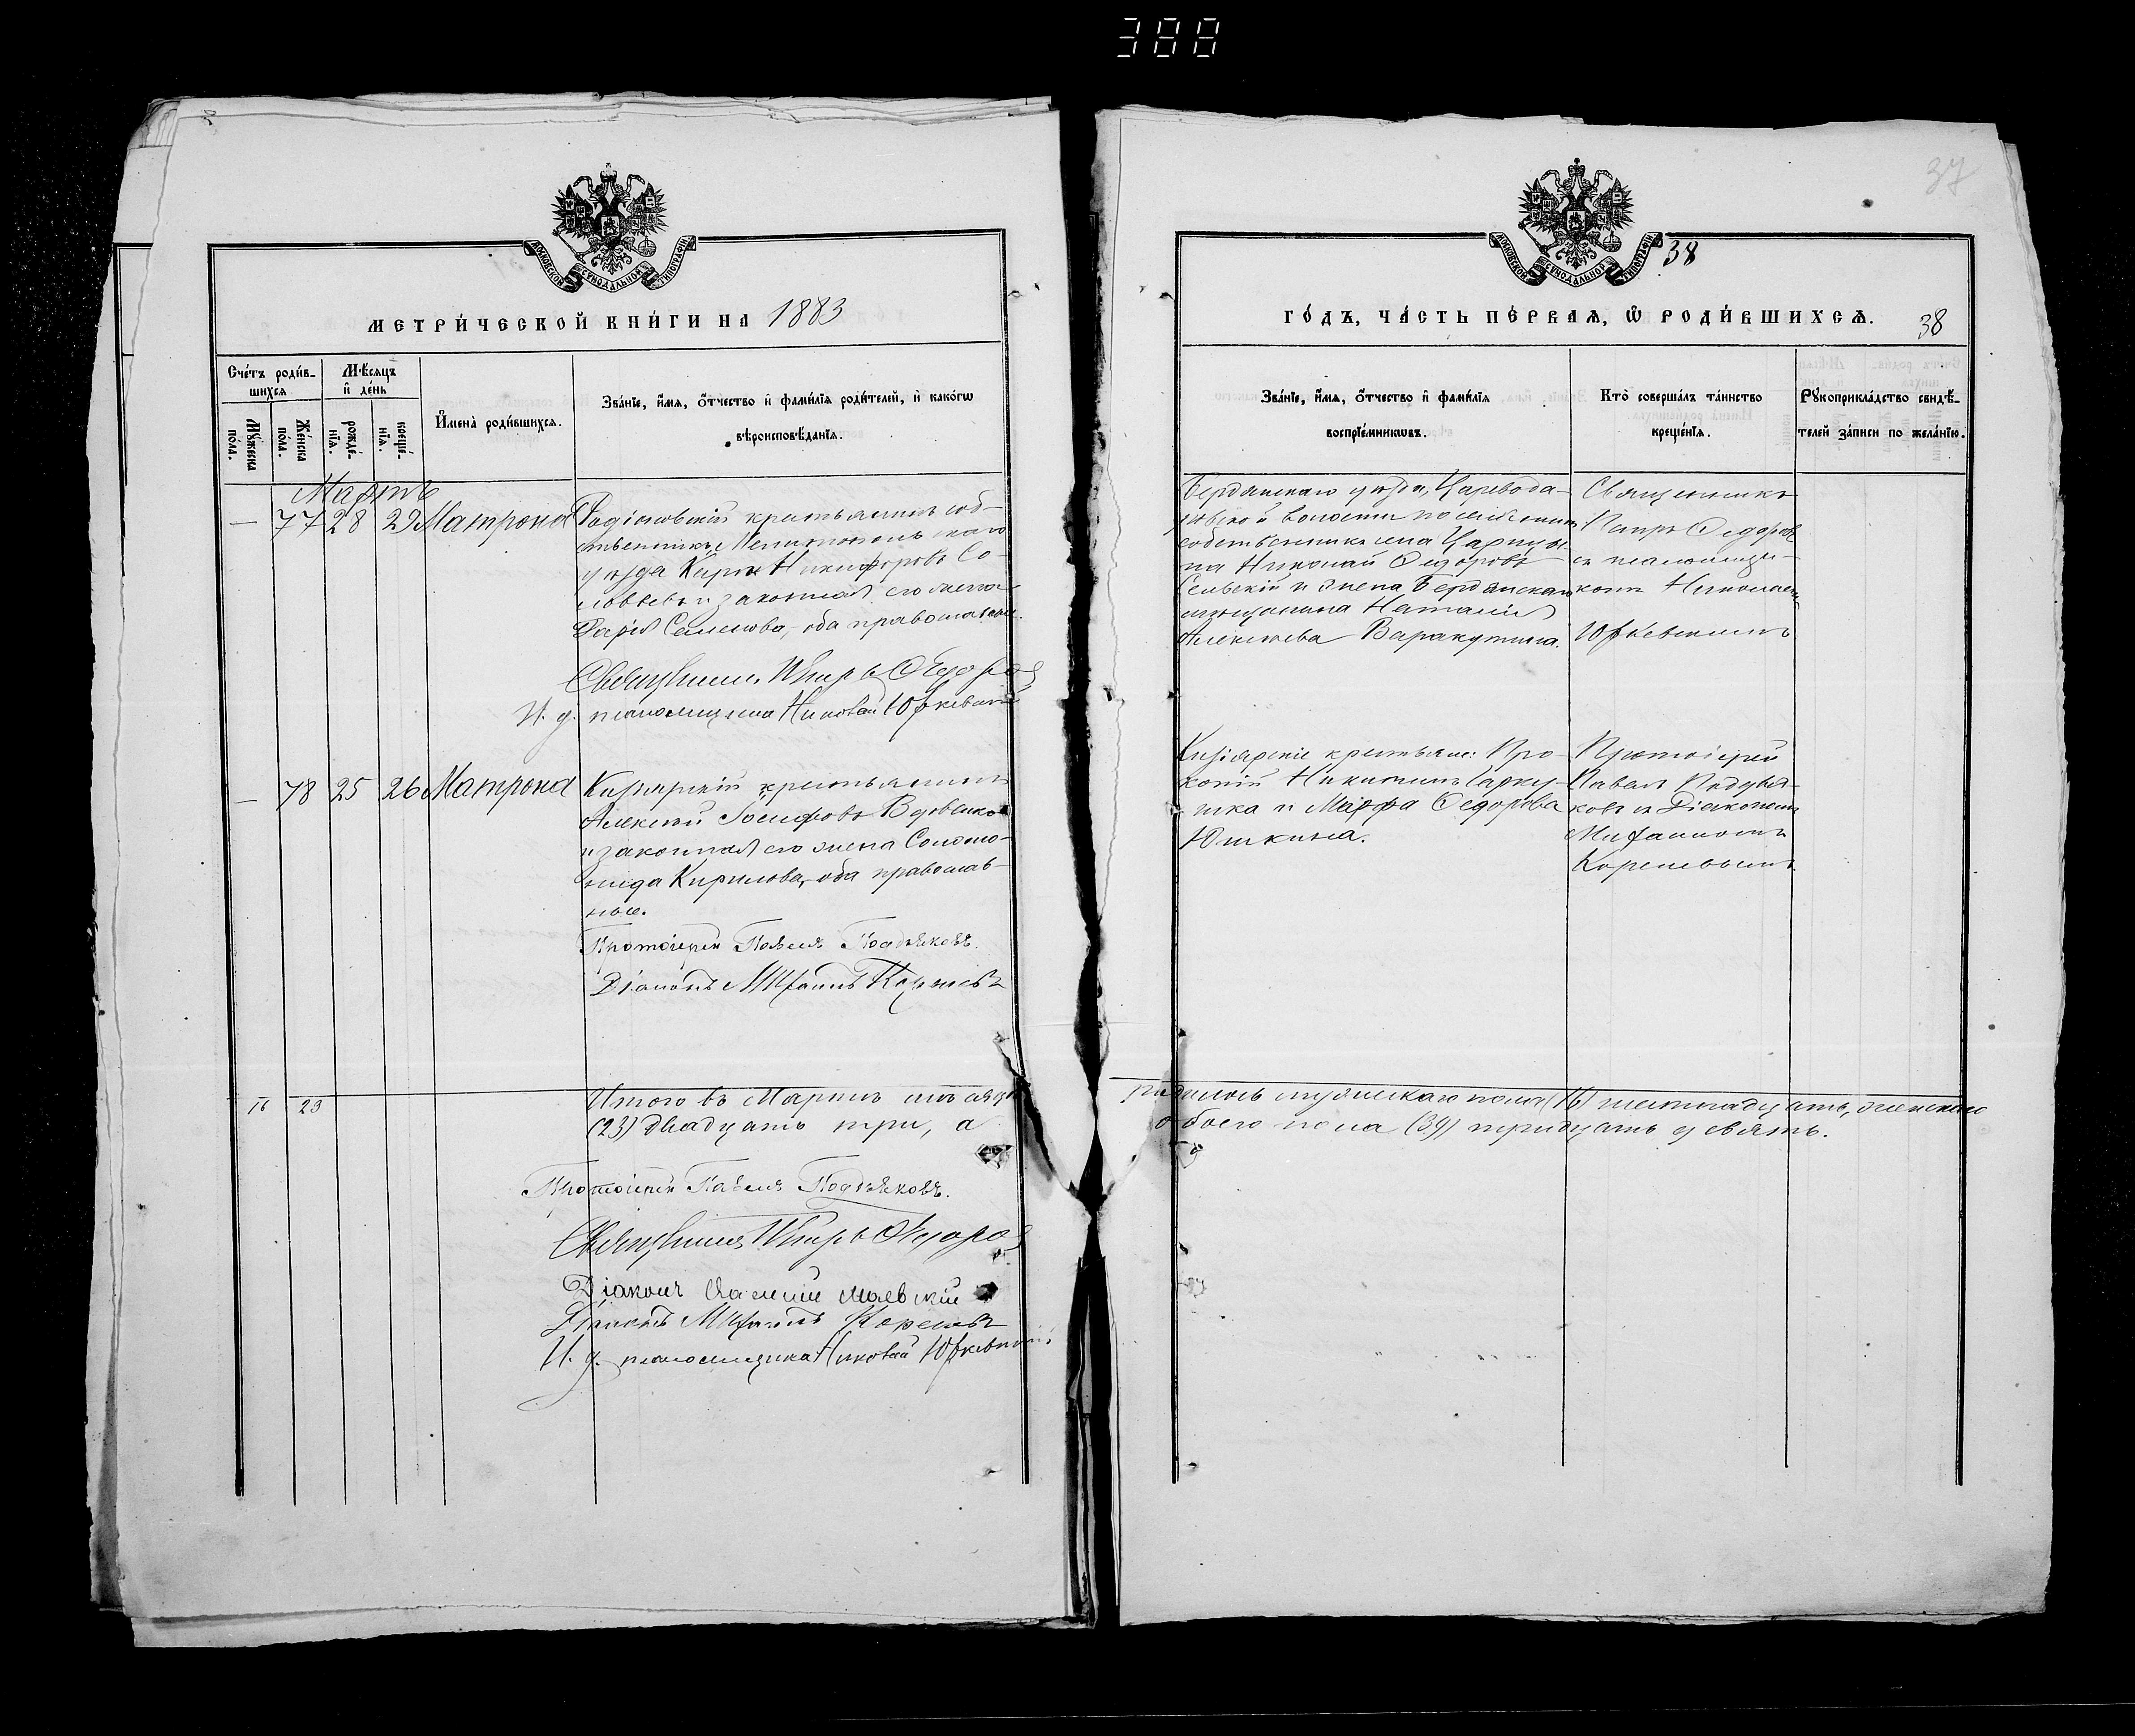 388
37
38
МОСКОВСКОЙ СѴНОДАЛЬНОЙ ТИПОГРАФІИ
МЕТРИ́ЧЕСКОЙ КНИ́ГИ НА 1883
Сче́тъ роди́в-
шихся
Мѣ́сяцъ
и҆ де́нь
Мꙋ́жеска
по́ла.
Же́нска
по́ла.
рожде́-
нїѧ.
креще́-
нїѧ.
И҆мена̀ роди́вшихсѧ.
Зва́нїе, и҆́мѧ, ѻ҆́тчество и҆ фами́лїѧ роди́телей, и҆ како́гѡ
вѣроисповѣ́данїѧ.
Мартъ
— 77 28 29 Матрона
Родіоновскій крестьянинъ соб-
ственникъ Мелитопольскаго
уѣзда Карпъ Никифоровъ Со-
ловьевъ и законная его жена
Дарія Семенова, оба православные.
Священникъ Петръ Ѳедоровъ
И. д. псаломщика Николай Юркевичъ
— 78 25 26 Матрона
Кизіярскій крестьянинъ
Алексѣй Іосифовъ Вдовенко
и законная его жена Соломо-
нида Кирилова, оба православ-
ные.
Протоіерей Павелъ Поддьяковъ.
Діаконъ Митрофанъ Кореневъ
16 23
Итого въ Мартѣ мѣсяцѣ
(23) двадцать три, а
Протоіерей Павелъ Поддьяковъ.
Священникъ Петръ Ѳедоровъ
Діаконъ Маевскій
Діаконъ Кореневъ
И. д. псаломщика Николай Юркевичъ
МОСКОВСКОЙ СѴНОДАЛЬНОЙ ТИПОГРАФІИ
ГО́ДЪ, ЧА́СТЬ ПЕ́РВАѦ, Ѡ҆ РОДИ́ВШИХСѦ.
38
Зва́нїе, и҆́мѧ, ѻ҆́тчество и҆ фами́лїѧ
воспрїе́мникѡвъ.
Кто̀ соверша́лъ та́инство
креще́нїѧ.
Рꙋкоприкла́дство свидѣ́-
телей за́писи по жела́нїю.
Бердянскаго уѣзда, Царевода-
ровской волости поселянинъ
собственникъ села Царицы-
на Николай Ѳедоровъ
и жена Бердянскаго
мѣщанина Наталія
Алексѣева Варакутина.
Священникъ
Петръ Ѳедоровъ
съ псаломщи-
комъ Николаемъ
Юркевичемъ
Кизіярскіе крестьяне: Про-
копій Никитинъ Гарку-
ша и Марѳа Ѳедорова
Юшкина.
Протоіерей
Павелъ Поддья-
ковъ съ Діакономъ
Кореневымъ
родилось мужескаго пола (16) шестнадцать, женскаго
обоего пола (39) тридцать девять.